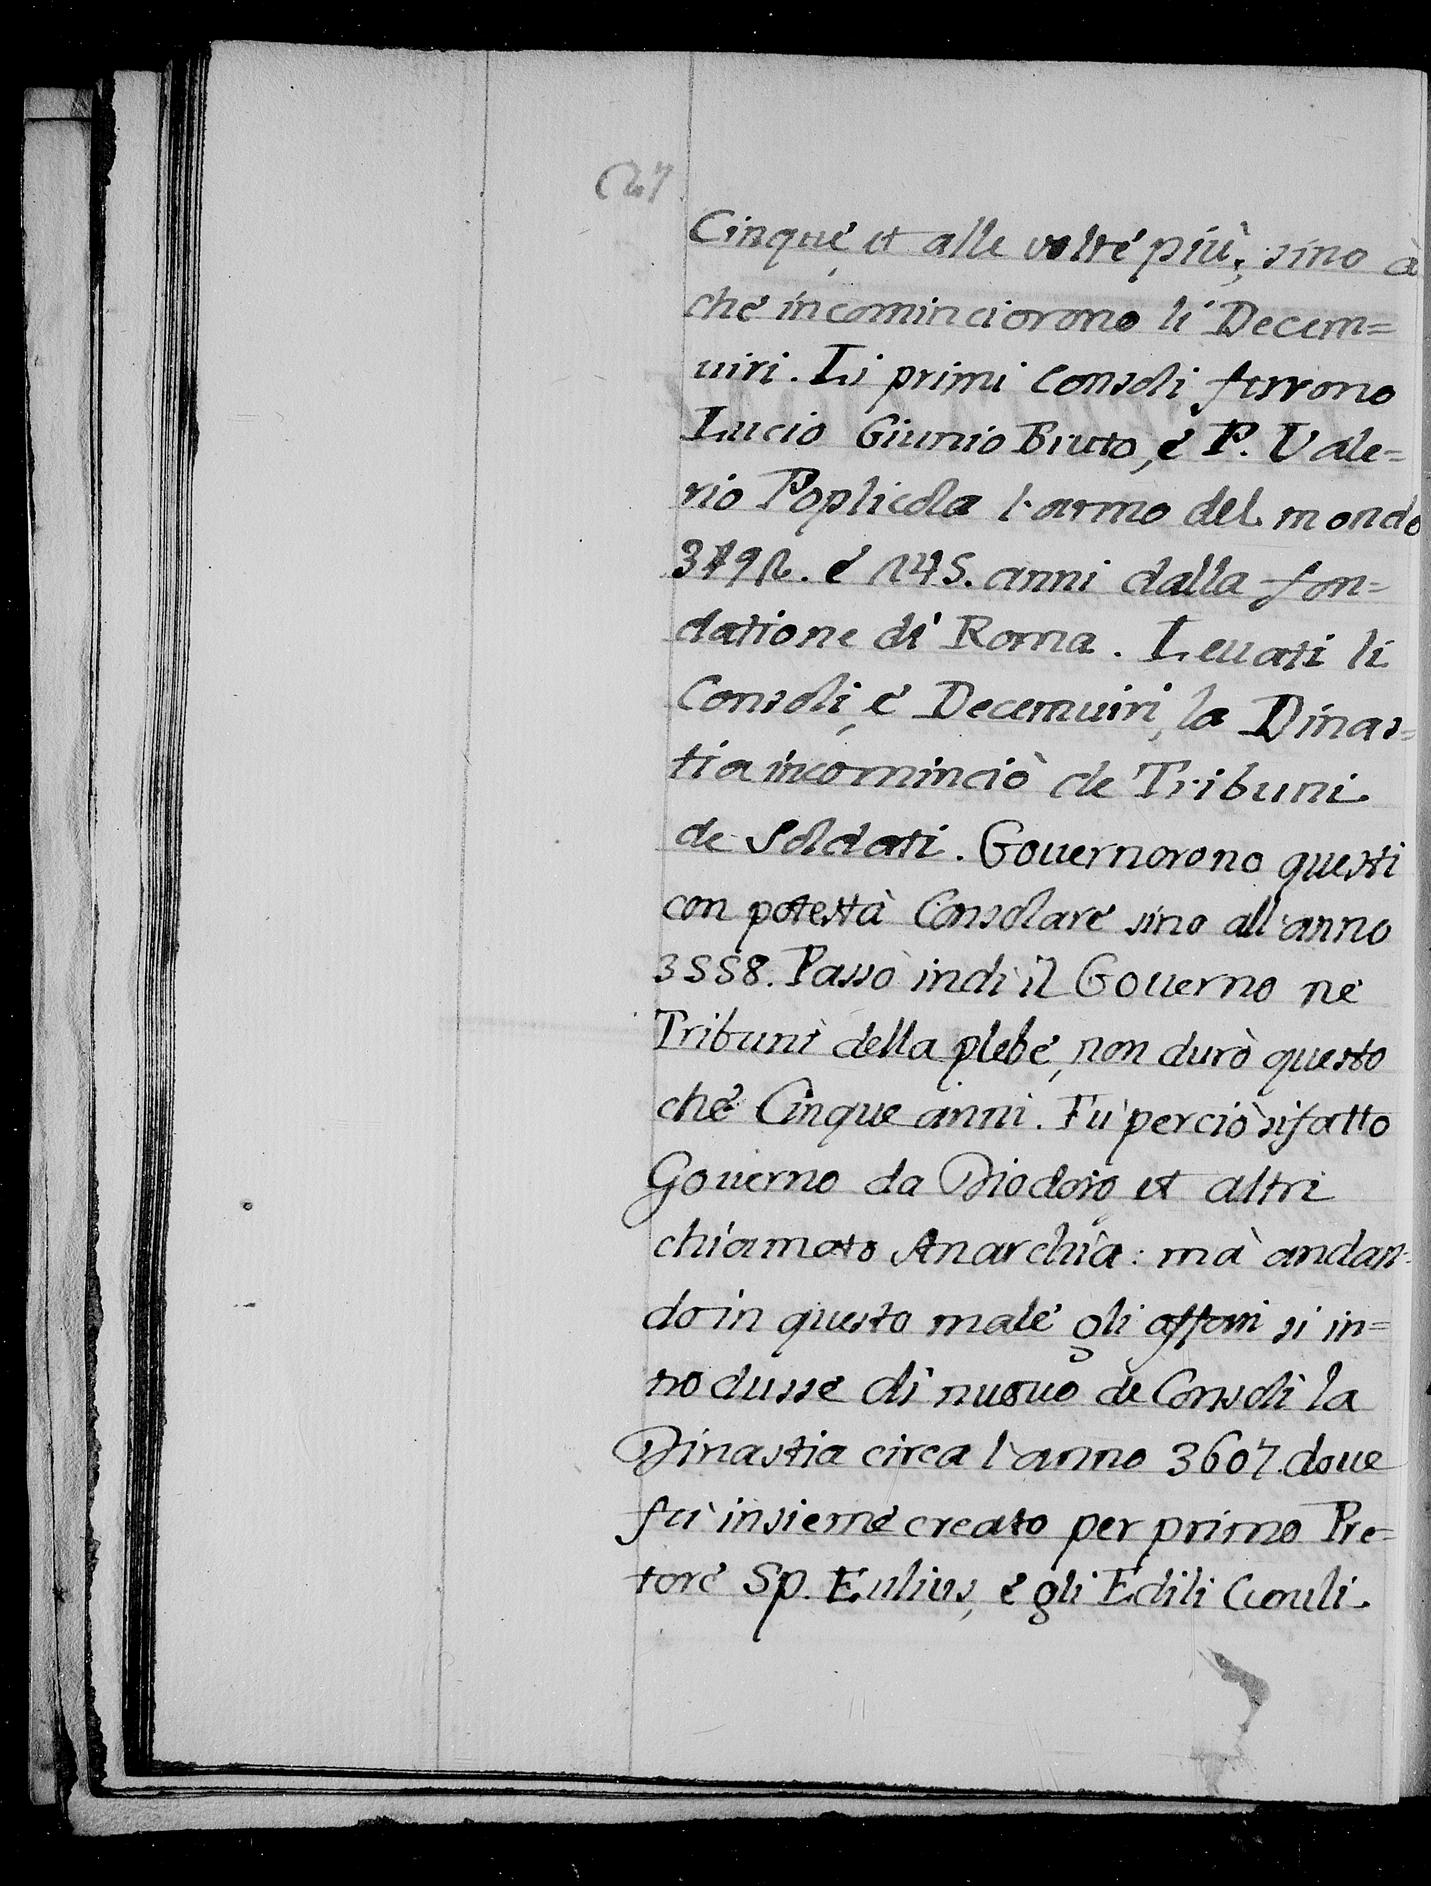 27.
Cinque, et alle volte più; sino à
che incominciorono li Decem=
uiri. Li primi Consoli furrono
Lucio Giunio Bruto, e P. Vale=
rio Poplicola l'anno del mondo
3492. e 245. anni dalla fon=
datione di Roma. Leuati li
Consoli, e Decemuiri, la Dinas=
tia incominciò de Tribuni
de Soldati. Gouernorono questi
con potestà Consolare sino all'anno
3558. Passò indi il Gouerno ne
Tribuni della plebe, non durò questo
che Cinque anni. Fù perciò sifatto
Gouerno da Diodoro et altri
chiamato Anarchia: mà andan=
do in questo male gli affari si in=
trodusse di nuouo de Consoli la
Dinastia circa l'anno 3607. doue
fù insieme creato per primo Pre=
tore Sp. Eulius, e gli Edili Curuli.